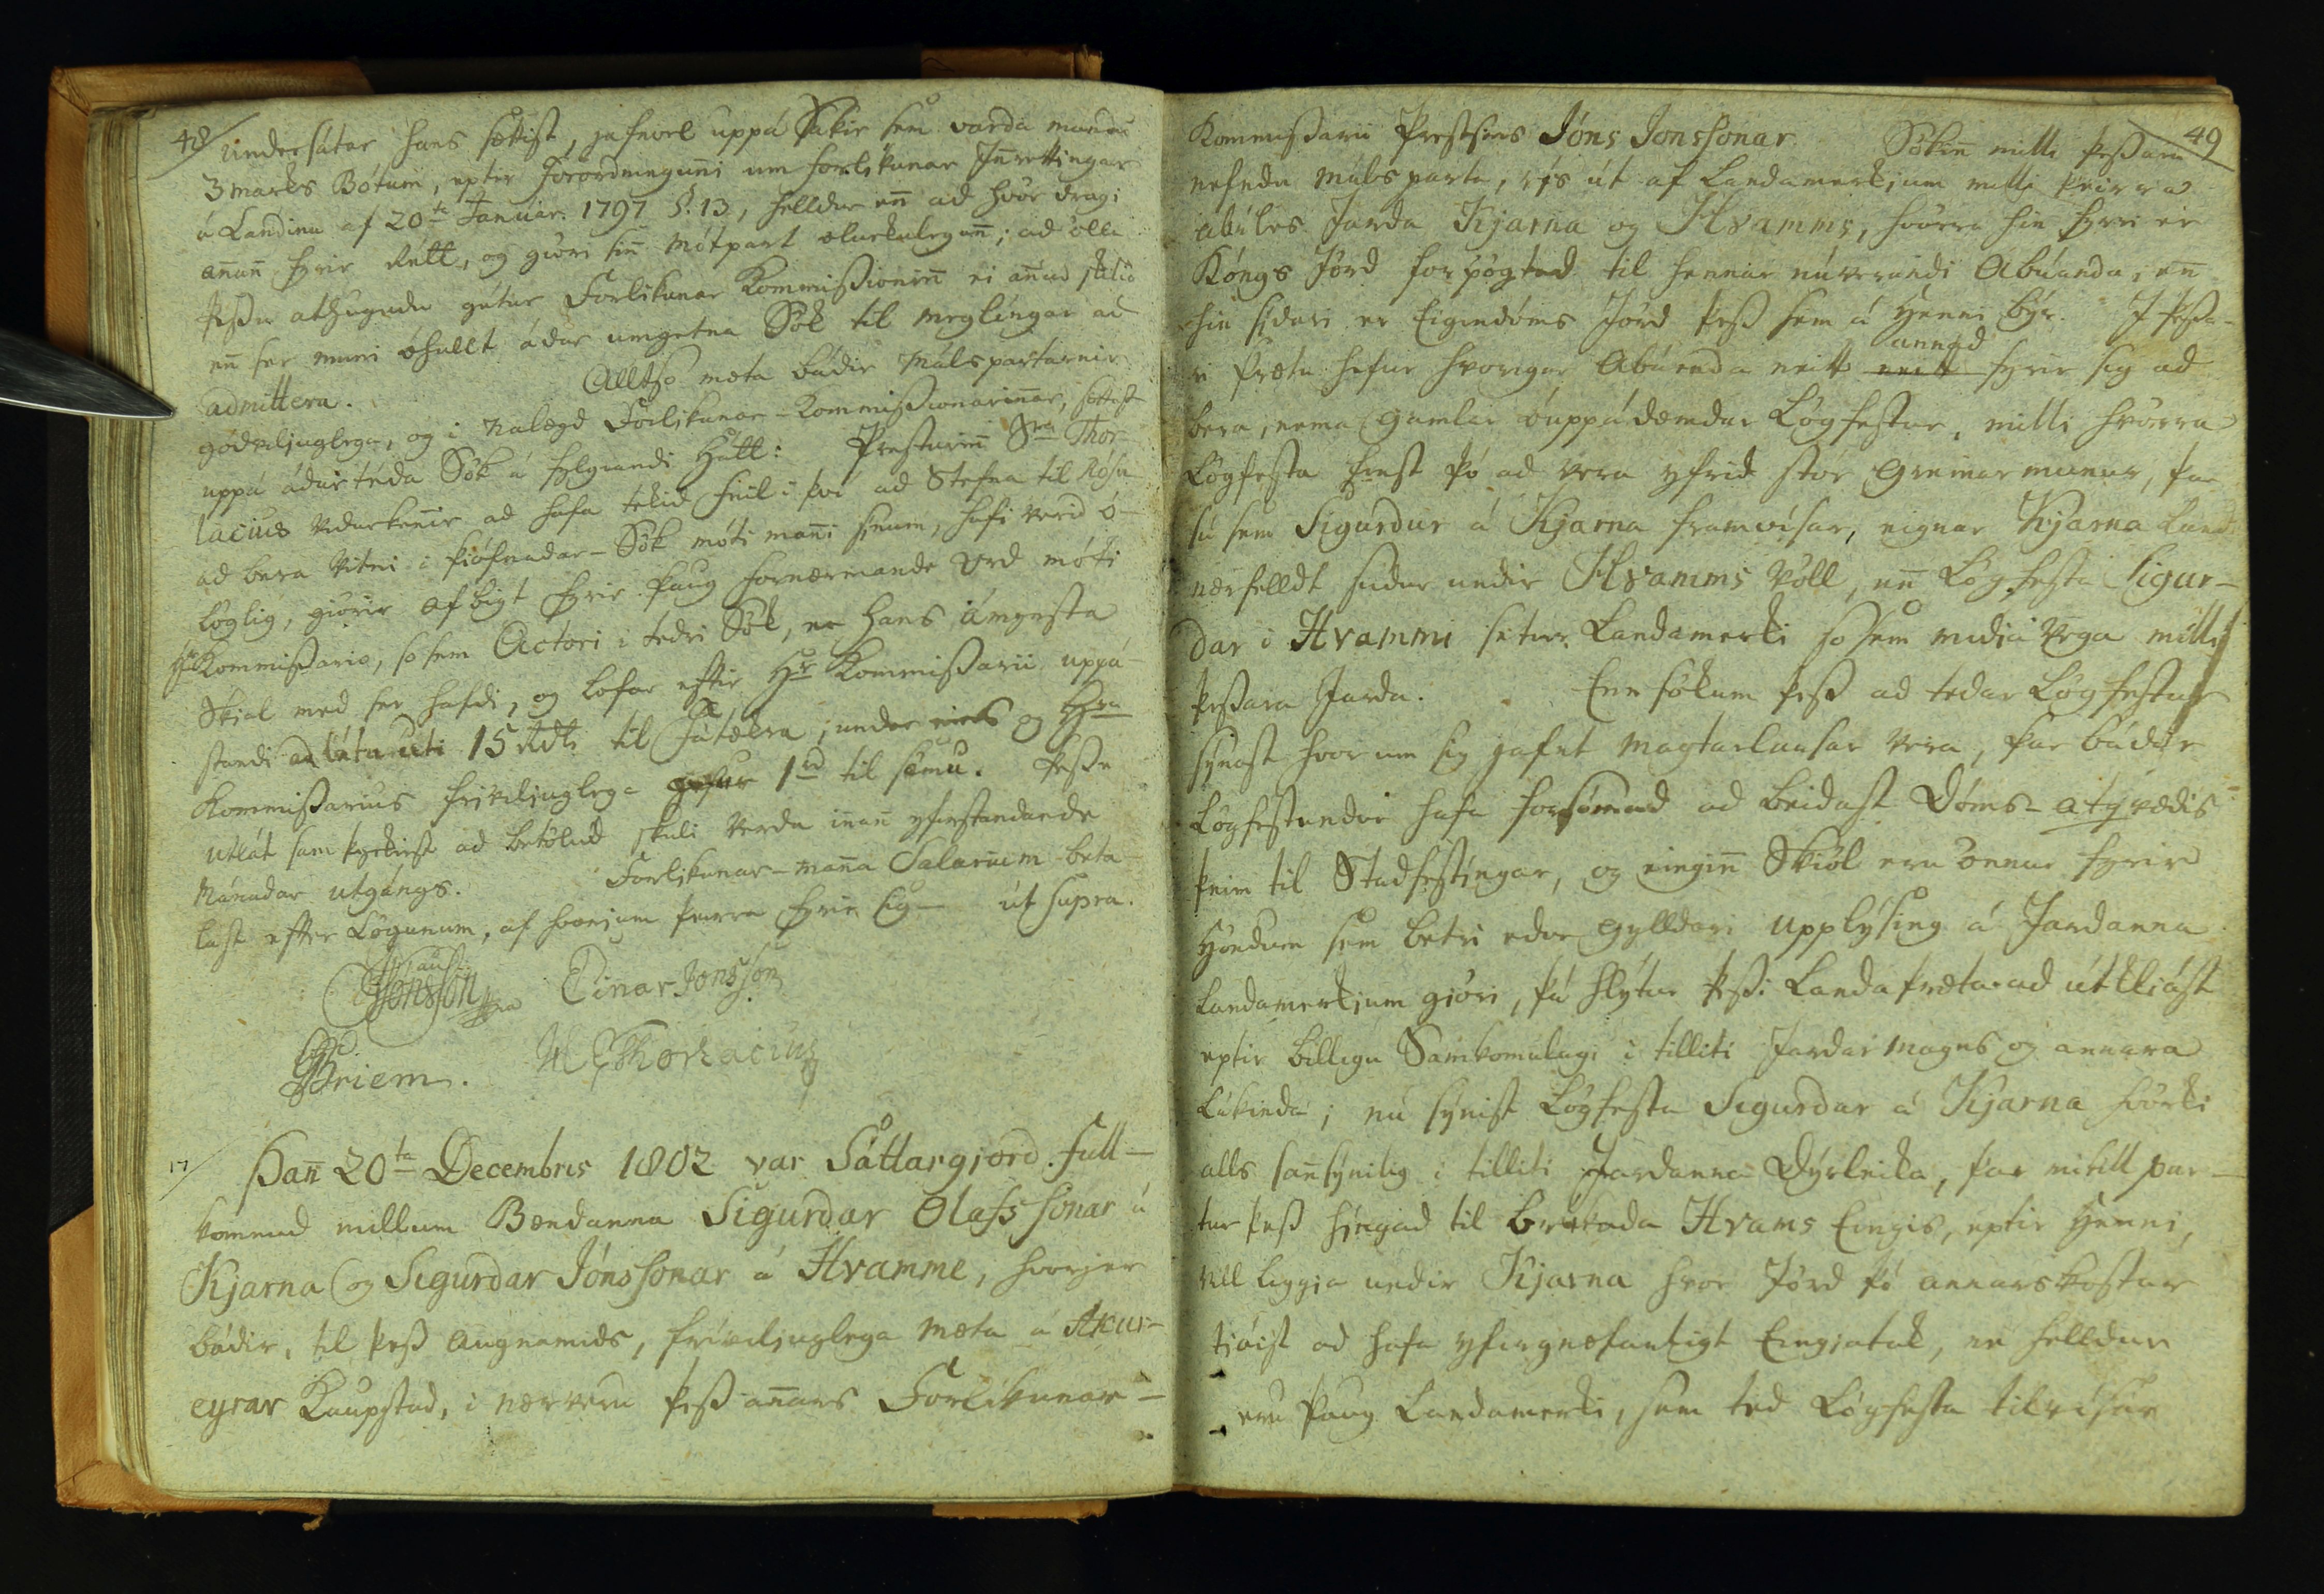 48
undersátar hans sættist, jafnvel uppá Sakir sem varda mundu
3 marks Bótum, epter Forordninguni um forlikunar Innrettingar
á Landinu af 20ta Januar. 1797 §. 13, helldur enn ad hvör dragi
annann fyrir Rett, og giöri sinn Mótpart elurkulegann; ad öllu
þessu athugudu getur Forlikunar Kommissionin ei annad
enn ser muni óhullt ádur umgetna Sök til meglingar ad
admittera. Alltso mæta bádir málspartarnir
godviljuglega, og i nálægd Forlikunar-Kommissionarinnar, sættast
uppá ádurtéda Sök á fylgiandi Hátt: Presturinn Sra Thor-
lacius vidurkennir ad hafa tekid feil i því ad Stefna til Rósu
ad bera Vitni i þiófnadar-Sök móti manni sinum, hafi verid ó-
löglig, giörir afbigt fyrir þaug fornærmande Ord móti
Hr Kommissario, so sem Actori i tedri Sök, er hans ámynsta
Skial med ser hafdi, og lofar eftir Hr Kommissarii uppá-
standi ad láta uti 15 rdl. til Fátækra, og Hra
Kommissarius friviljuglega gefur 1rd til sömu. Þessu
utlát samþyckist ad betölud skuli verda innann yfirstandande
Mánadar utgángs. Forlikunar-manna Salarium beta-
last efter Lögunum, af hvorjum þeirra fyrir sig - út supra.
Jónsson Einar Jonsson
GBriem. HEThorlacius
17/ Þann 20ta Decembris 1802 var Sáttargjörd full-
komnud millum Bændanna Sigurdar Olafssonar á
Kjarna og Sigurdar Jónssonar á Hvamme, hvorjer
bádir, til þess augnamids, friviljuglega mæta á Akur-
eyrar Kaupstad, i nærveru þess annars Forlikunar-
49
Kommissarii Prestsins Jóns Jonssonar. Sökinn milli þessara
nefndu málsparta, rís út af Landamerkjum milli þeirra
ábúles Jarda Kjarna og Hvamms, hvörra hin fyrri er
Kóngs Jörd forpogted til hennar núverandi Ábúanda, enn
hin sídari er Eigindóms Jörd þess sem á Henni býr. I þessa-
ri Þrætu hefur hvorigur Abúenda neitt neitt annad fyrir sig ad
bera, nema gamlar óuppádæmdar Lögfestur, milli hvörra
Lögfesta finst þó ad vera yfrid stór Greinarmunur, þar
sú sem Sigurdur á Kjarna framvísar, eignar Kjarna Land
nærfelldt sudur undir Hvamms Völl, enn Lögfesta Sigur-
dar i Hvammi setur Landamerki so sem midia vega milli
þessara Jarda. Enn sökum þess ad tedar Lögfestur
synast hvor um sig jafnt magtarlausar vera, þar bádir
Lögfestendur hafa forsömad ad beidast Dóms-atqvædis
þeim til Stadfestingar, og eingin Skiöl eru önnur fyrir
Höndum sem betri edur gylldari upplýsing á Jardanna
Landamerkjum giöri, þá hlýtur þessi Landaþræta ad útkliást
eptir billigu Samkomulagi i tilliti Jardar magns og annara
Lukinda; nú synist Lögfesta Sigurdar á Kjarna hvörki
alls sannsynilig i tilliti Jardanna Dyrleika, þar mikill par-
tur þess hingad til brúkada Hvams Eingis, eptir Henni,
vill liggja undir Kjarna hvor Jörd þó annarskostar
tiáist ad hafa yfirgnæfanligt Eingjatak, ne helldur
eru þaug Landamerki, sem ted Lögfesta tilvísar